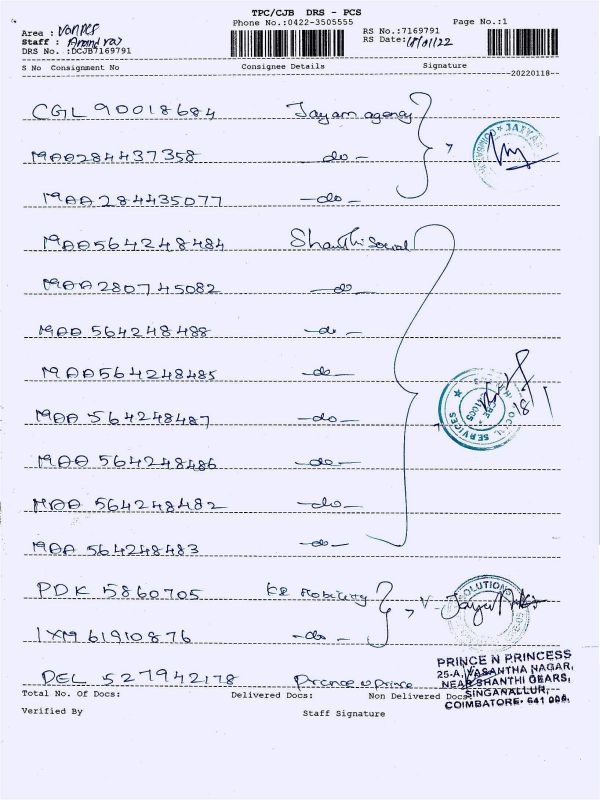 TPC/CJB DRS - PCS
Phone No.:0422-3505555 Page No.:1
Area :
Staff : Anand raj
RS No.:7169791
DRS No. :DCJB7169791
RS Date: 18/01/22
S No Consignment No Consignee Details Signature
20220118
CGL 90018684 Jayam agency
MAA284437358 -do-
MAA 284435077 -do-
MAA564248484 Shanthi Social
MAA 280745082 -do-
MAA 564248488 -do-
MAA564248485 -do-
MAA 564248487 -do-
MAA 564248486 -do-
MAA 564248482 -do-
MAA 564248483 -do-
PDK 5860705 K2 Mobility
IXM 61910876 -do-
DEL 527942178 Prince n prince
SOCIAL SERVICES
SOLUTIONS
PRINCE N PRINCESS
25-A, VASANTHA NAGAR,
NEAR SHANTHI GEARS,
SINGANALLUR,
COIMBATORE- 641 005.
Total No. Of Docs: Delivered Docs: Non Delivered Docs:
Verified By Staff Signature